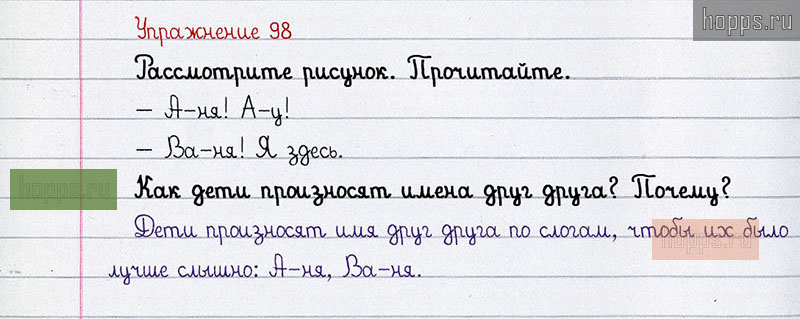 hopps.ru
Упражнение 98
Рассмотрите рисунок. Прочитайте.
– А-ня! А-у!
– Ва-ня! Я здесь.
hopps.ru
Как дети произносят имена друг друга? Почему?
Дети произносят имя друг друга по слогам, чтобы их было
hopps.ru
лучше слышно: А-ня, Ва-ня.